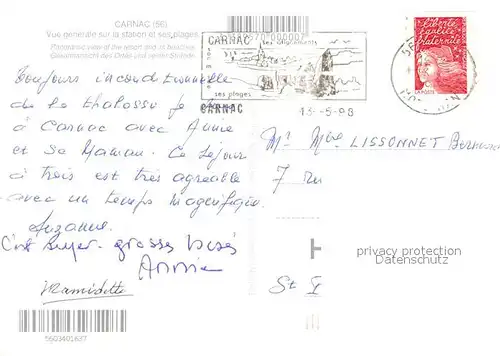 CARNAC (56)
Vue générale sur la station et ses plages
Panoramic view of the resort and its beaches
Gesamtansicht des Ortes und seiner Strände
70 000007
CARNAC ses alignements
ses plages
CARNAC
13-5-98
liberté
égalité
fraternité
Toujours inconditionnelle
de la thalasso je
à Carnac avec Anne
et sa maman. Ce séjour
à trois est très agréable
avec un temps magnifique
Suzanne
C'est super. grosses bises
Annie
Mamidette
Mr Mme LISSONNET
7 rue
St
privacy protection
Datenschutz
5603401627